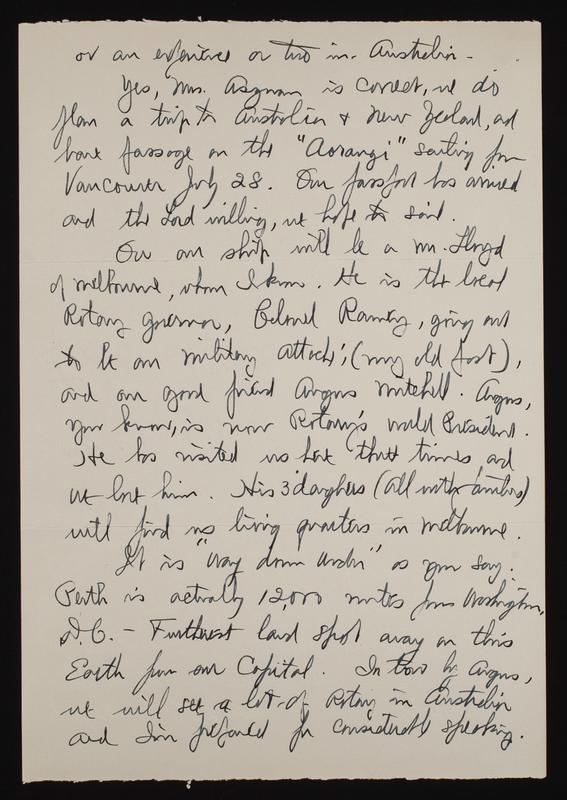 or an experience or two in Australia.
Yes, Mrs. Assman is correct, we do
plan a trip to Australia & New Zealand, and
have passage on the "Aorangi" sailing from
Vancouver July 28. Our passport has arrived
and the Lord willing, we hope to sail.
On our ship will be a Mr. Lloyd
of Melbourne, whom I know. He is the local
Rotary governor, Colonel Ramey, going out
to be our military attaché, (my old post),
and our good friend Angus Mitchell. Angus,
you know, is now Rotary's world President.
He has visited us here three times, and
we love him. His 3 daughters (all with families)
will find us living quarters in Melbourne.
It is "way down under" as you say.
Perth is actually 12,000 miles from Washington,
D.C. - Furthest land spot away on this
Earth from our Capital. In tow by Angus,
we will see a lot of Rotary in Australia
and I'm prepared for considerable speaking.